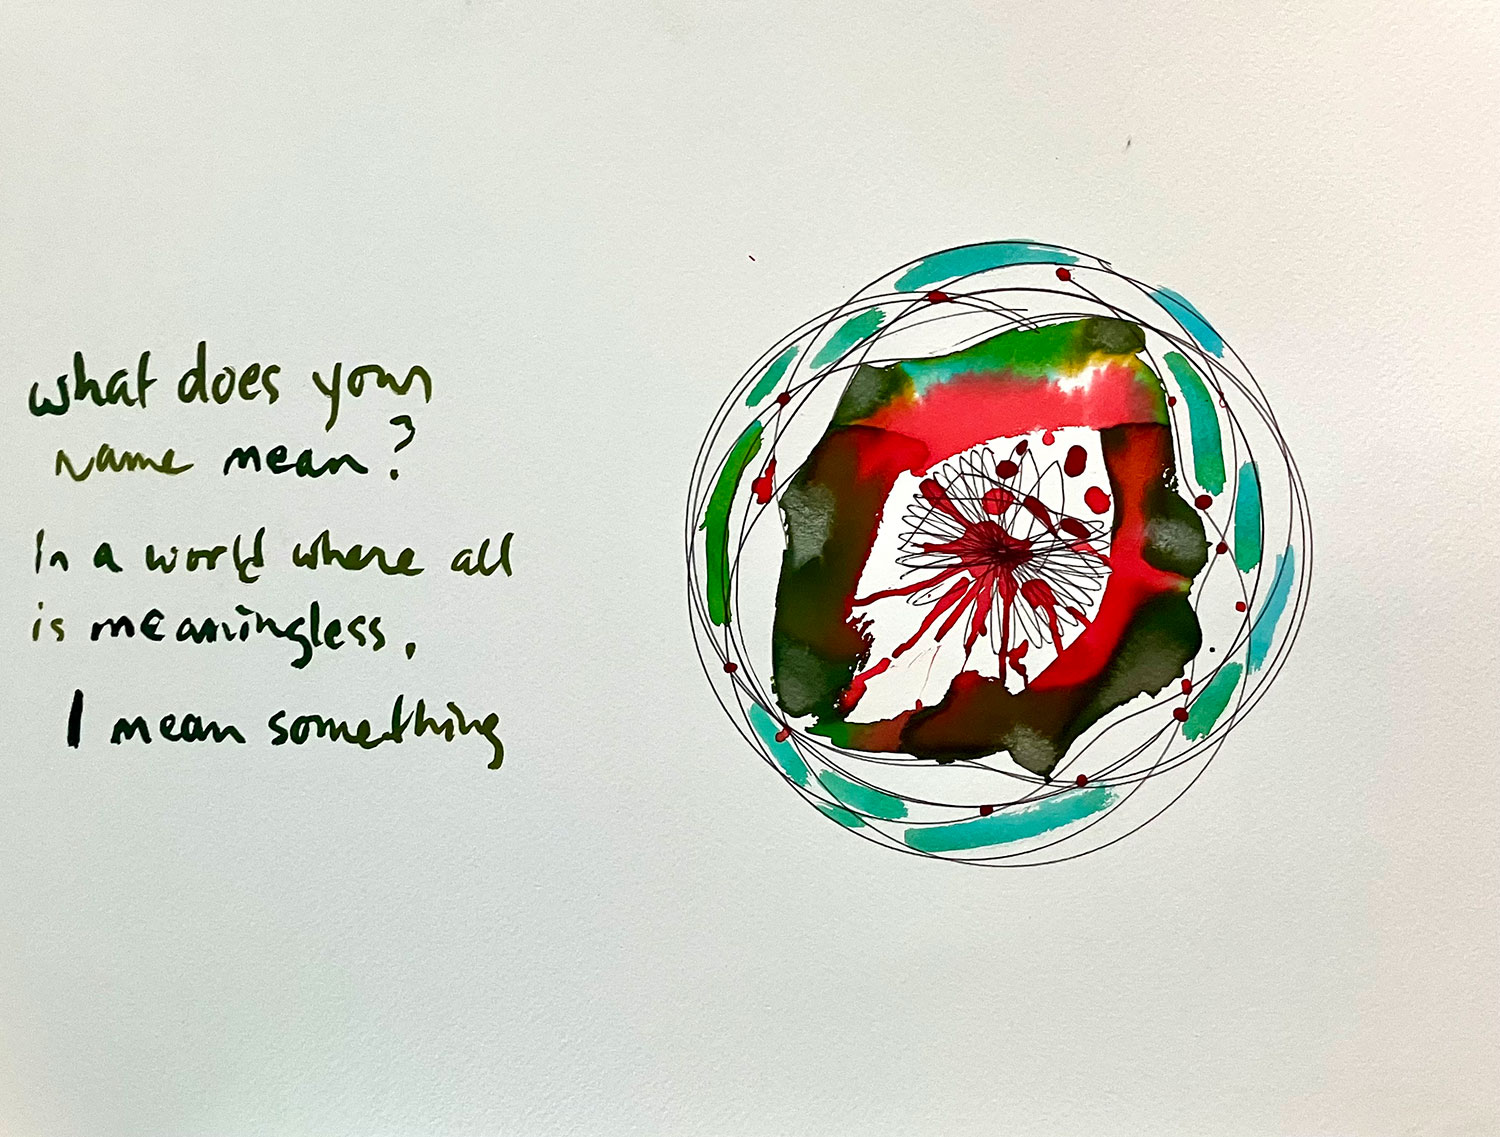 what does your
name mean?
In a world where all
is meaningless,
I mean something